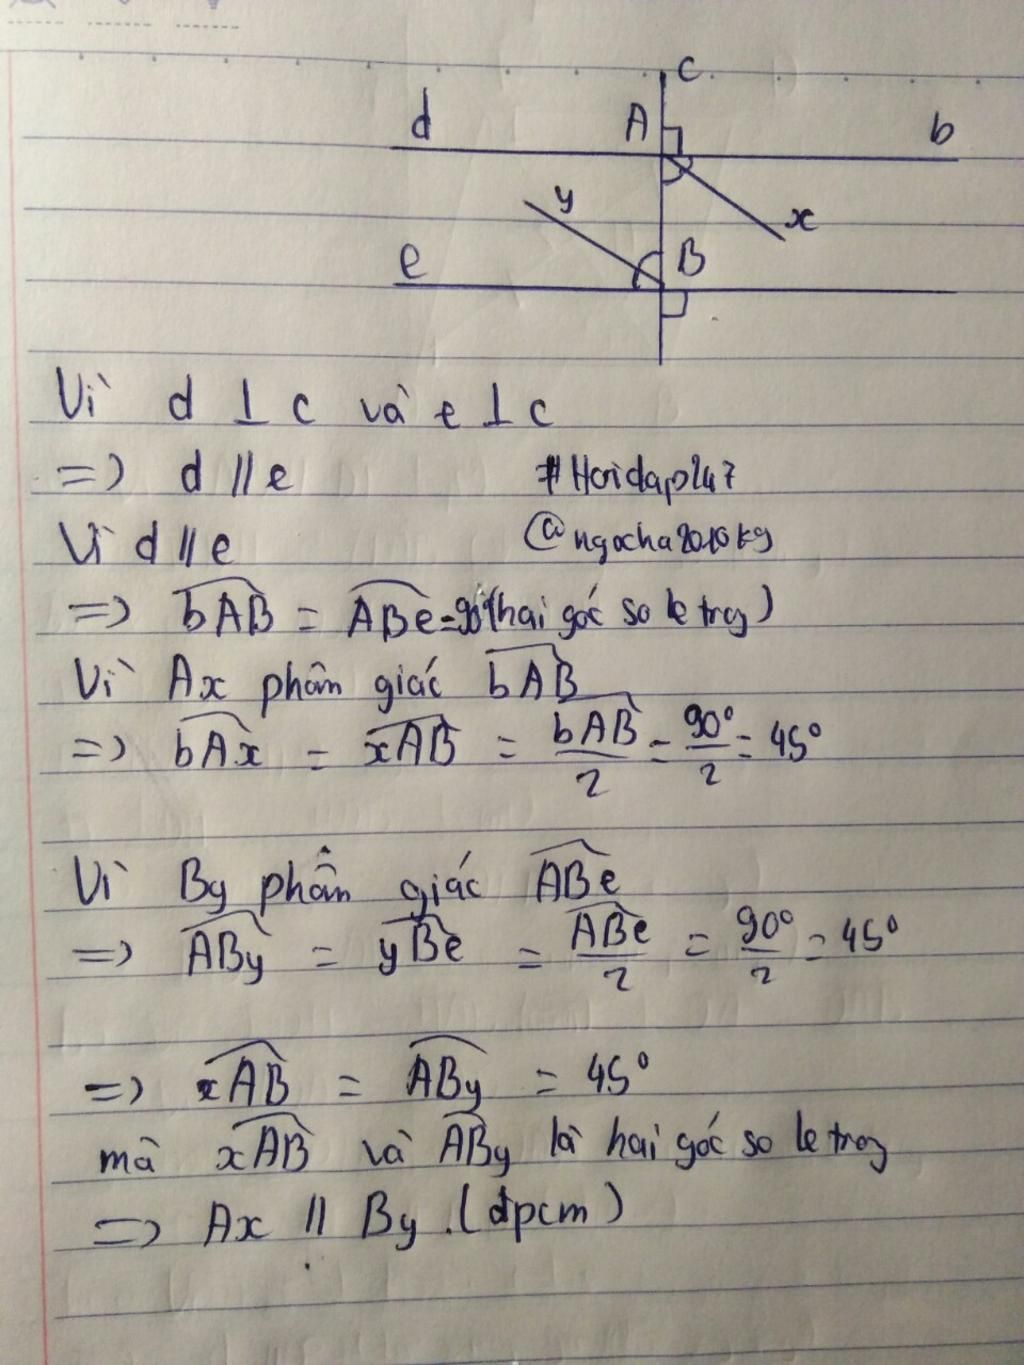 c
d A b
y x
e B
Vì d ⊥ c và e ⊥ c
=> d // e #Hoidap247
Vì d // e @ngocha2010kg
=> bAB = ABe = 90° (hai góc so le trog)
Vì Ax phân giác bAB
=> bAx = xAB = bAB/2 = 90°/2 = 45°
Vì By phân giác ABe
=> ABy = yBe = ABe/2 = 90°/2 = 45°
=> xAB = ABy = 45°
mà xAB và ABy là hai góc so le trog
=> Ax // By. (đpcm)